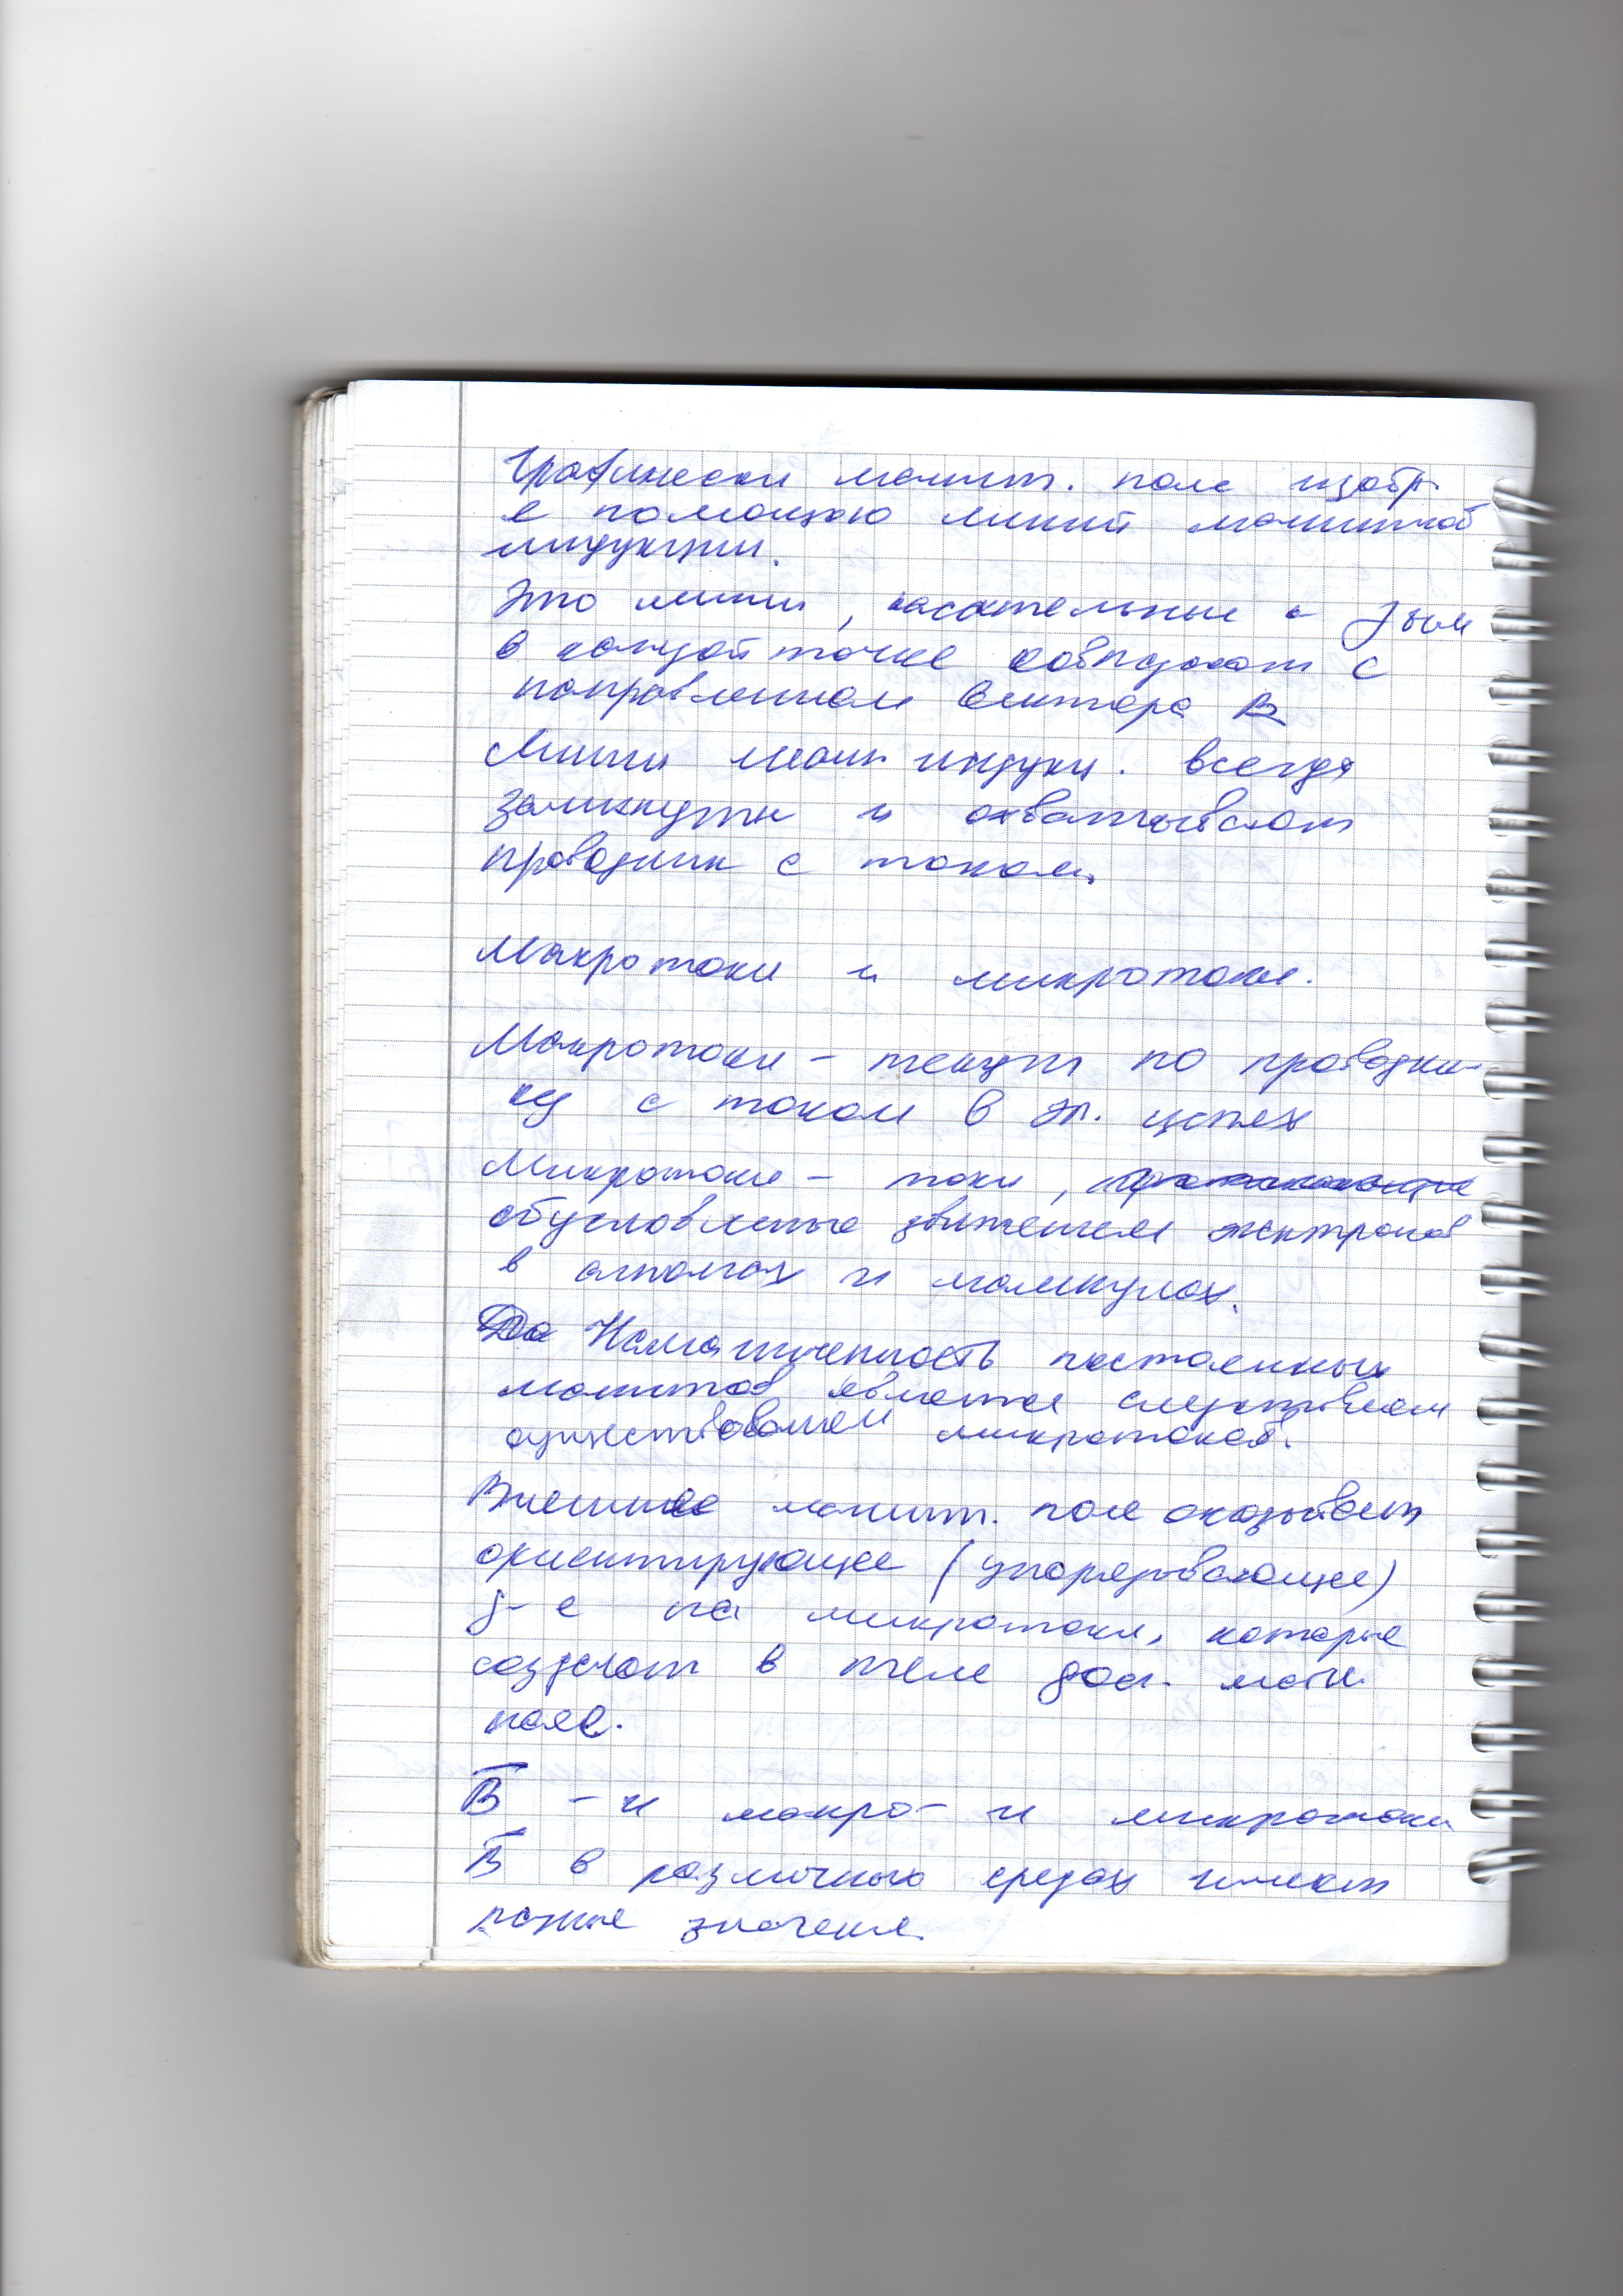 Графически магнит. поле изобр.
с помощью линий магнитной
индукции.
Это линии, касательные к
в каждой точке совпадают с
направлением вектора B
Линии магн. индукц. всегда
замкнуты и охватывают
проводник с током.
Макротоки и микротоки.
Макротоки – текут по проводни-
ку с током в эл. цепях
Микротоки – токи,
обусловленные движением электронов
в атомах и молекулах.
Намагниченность постоянных
магнитов является следствием
существования микротоков.
Внешнее магнит. поле оказывает
ориентирующее (упорядовающее)
д-е на микротоки, которые
создают в теле доп. магн.
поле.
B̅ – и макро- и микротоки
B̅ в различных средах имеет
разные значения.